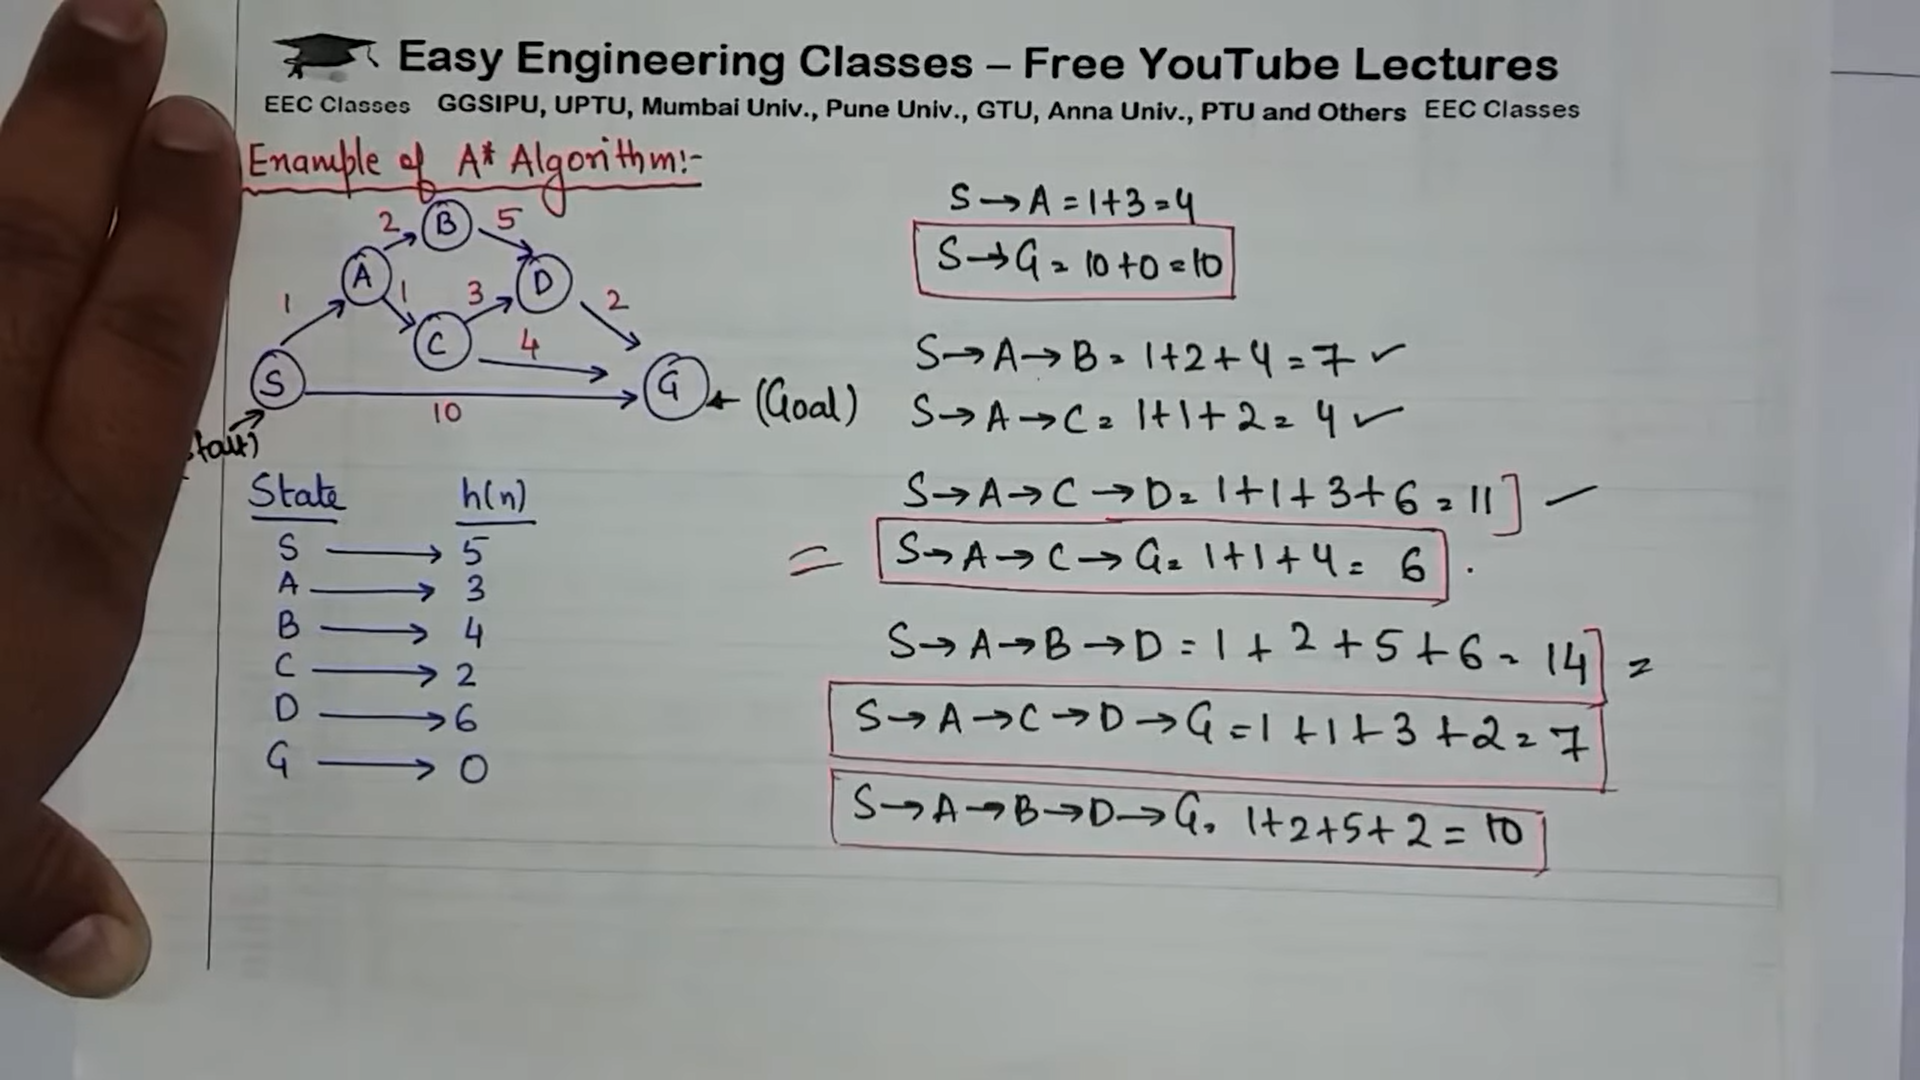 Easy Engineering Classes – Free YouTube Lectures
EEC Classes GGSIPU, UPTU, Mumbai Univ., Pune Univ., GTU, Anna Univ., PTU and Others EEC Classes
Enample of A* Algorithm:-
2 B 5
A 1 3 D 2
1 C 4
S 10 G ← (Goal)
State h(n)
S → 5
A → 3
B → 4
C → 2
D → 6
G → 0
S → A = 1+3 = 4
S → G = 10+0 = 10
S → A → B = 1+2+4 = 7 ✓
S → A → C = 1+1+2 = 4 ✓
S → A → C → D = 1+1+3+6 = 11 ] –
= S → A → C → G = 1+1+4 = 6 .
S → A → B → D = 1+2+5+6 = 14 ] =
S → A → C → D → G = 1+1+3+2 = 7
S → A → B → D → G = 1+2+5+2 = 10